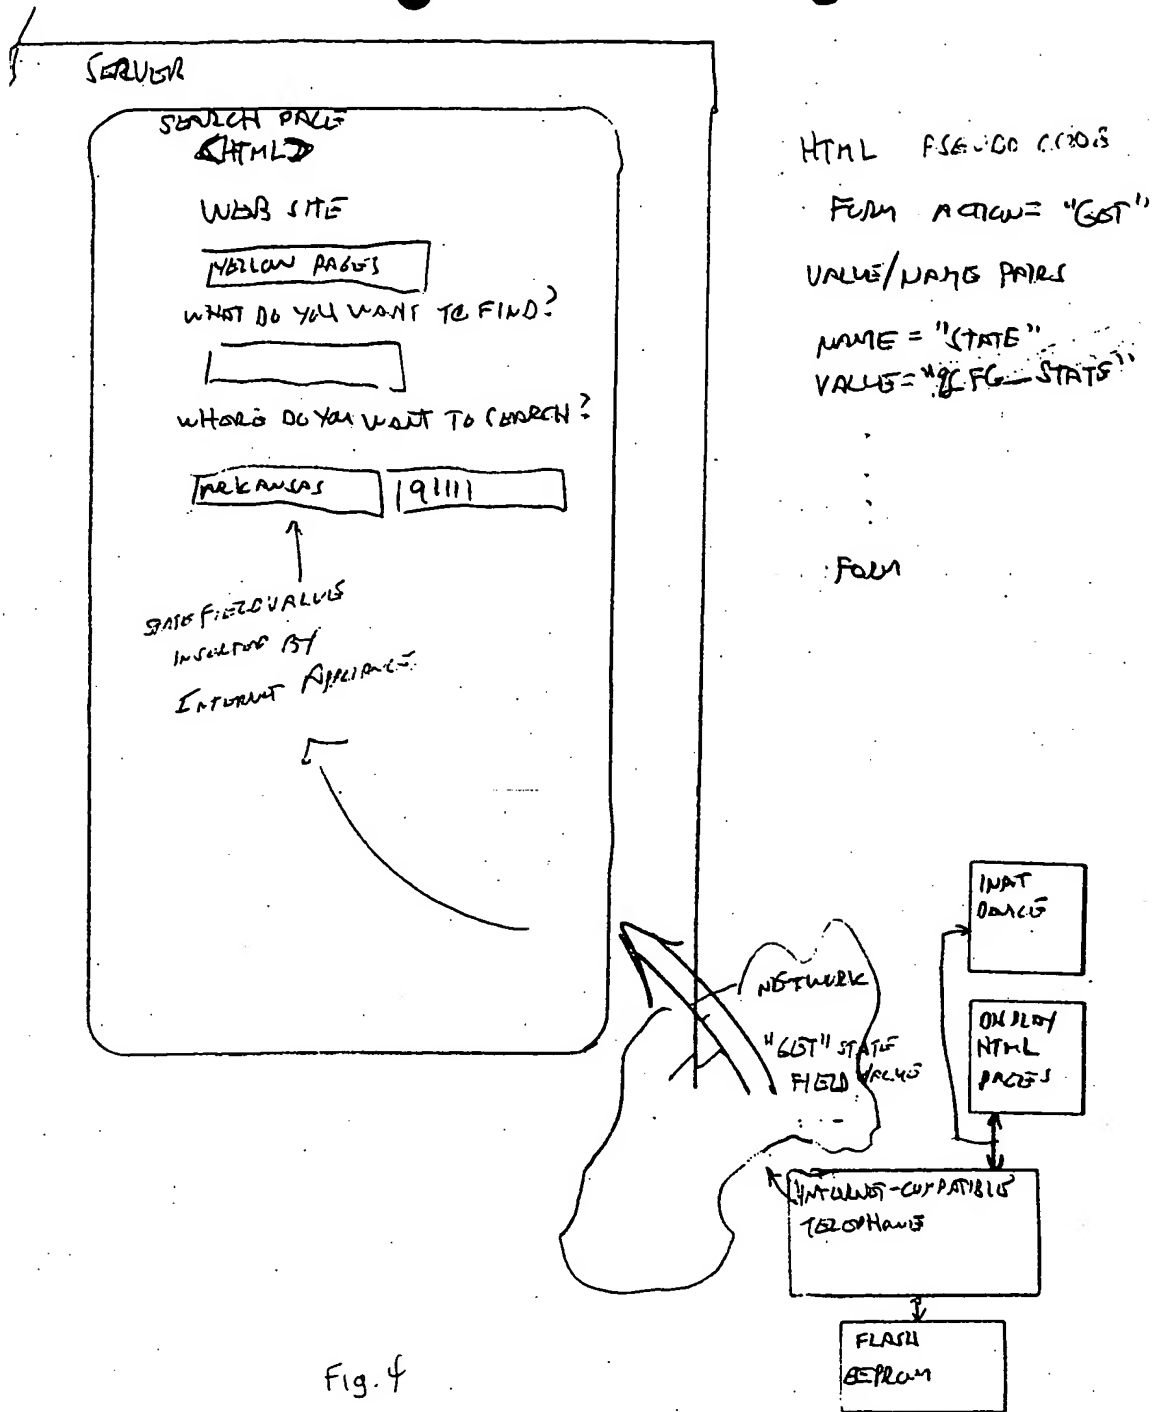 SERVER
SEARCH PAGE
<HTML>
WEB SITE
YELLOW PAGES
WHAT DO YOU WANT TO FIND?
WHERE DO YOU WANT TO SEARCH?
ARKANSAS
91111
STATE FIELD VALUE
INSERTED BY
INTERNET APPLIANCE
HTML PSEUDO CODE
FORM ACTION= "GET"
VALUE/NAME PAIRS
NAME = "STATE"
CFG_STATE"
FORM
NETWORK
"GET" STATE
FIELD VALUE
INPUT
DEVICE
DISPLAY
HTML
PAGES
INTERNET-COMPATIBLE
TELEPHONE
FLASH
EEPROM
Fig. 4